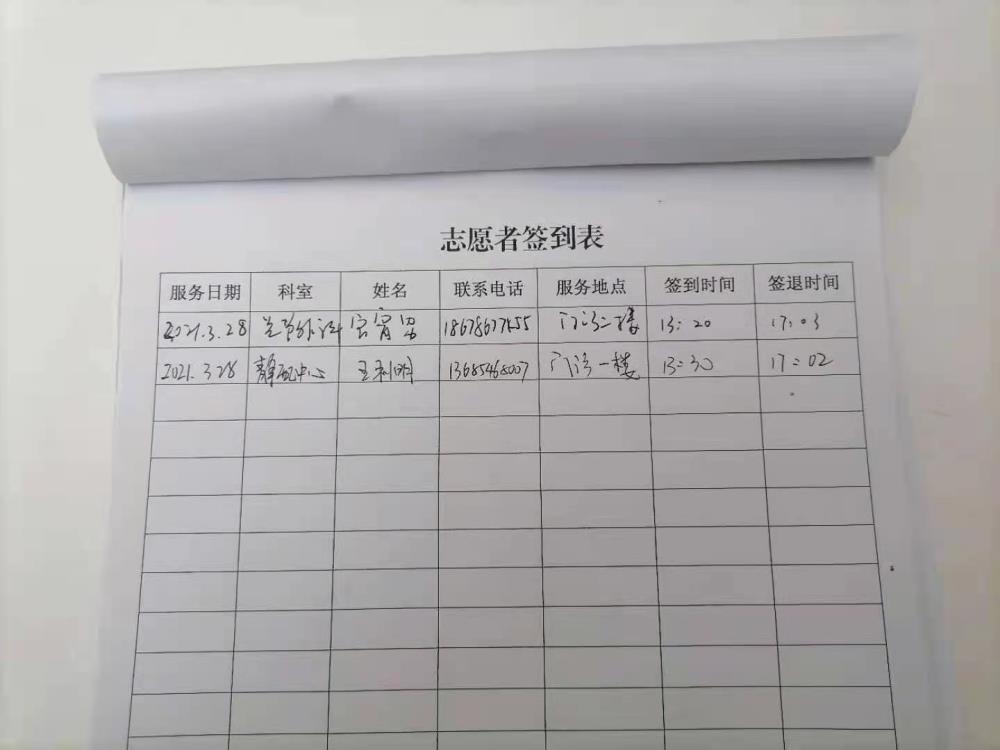 志愿者签到表
服务日期 科室 姓名 联系电话 服务地点 签到时间 签退时间
2021.3.28 门诊二楼 13:20 17:03
2021.3.28 静配中心 王利明 13685468007 门诊一楼 13:30 17:02